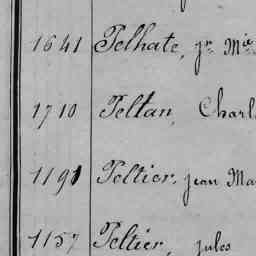 1641 Pelhate, jn Mie
1710 Peltan, Charl
1191 Peltier, jean Ma
1157 Peltier, jules